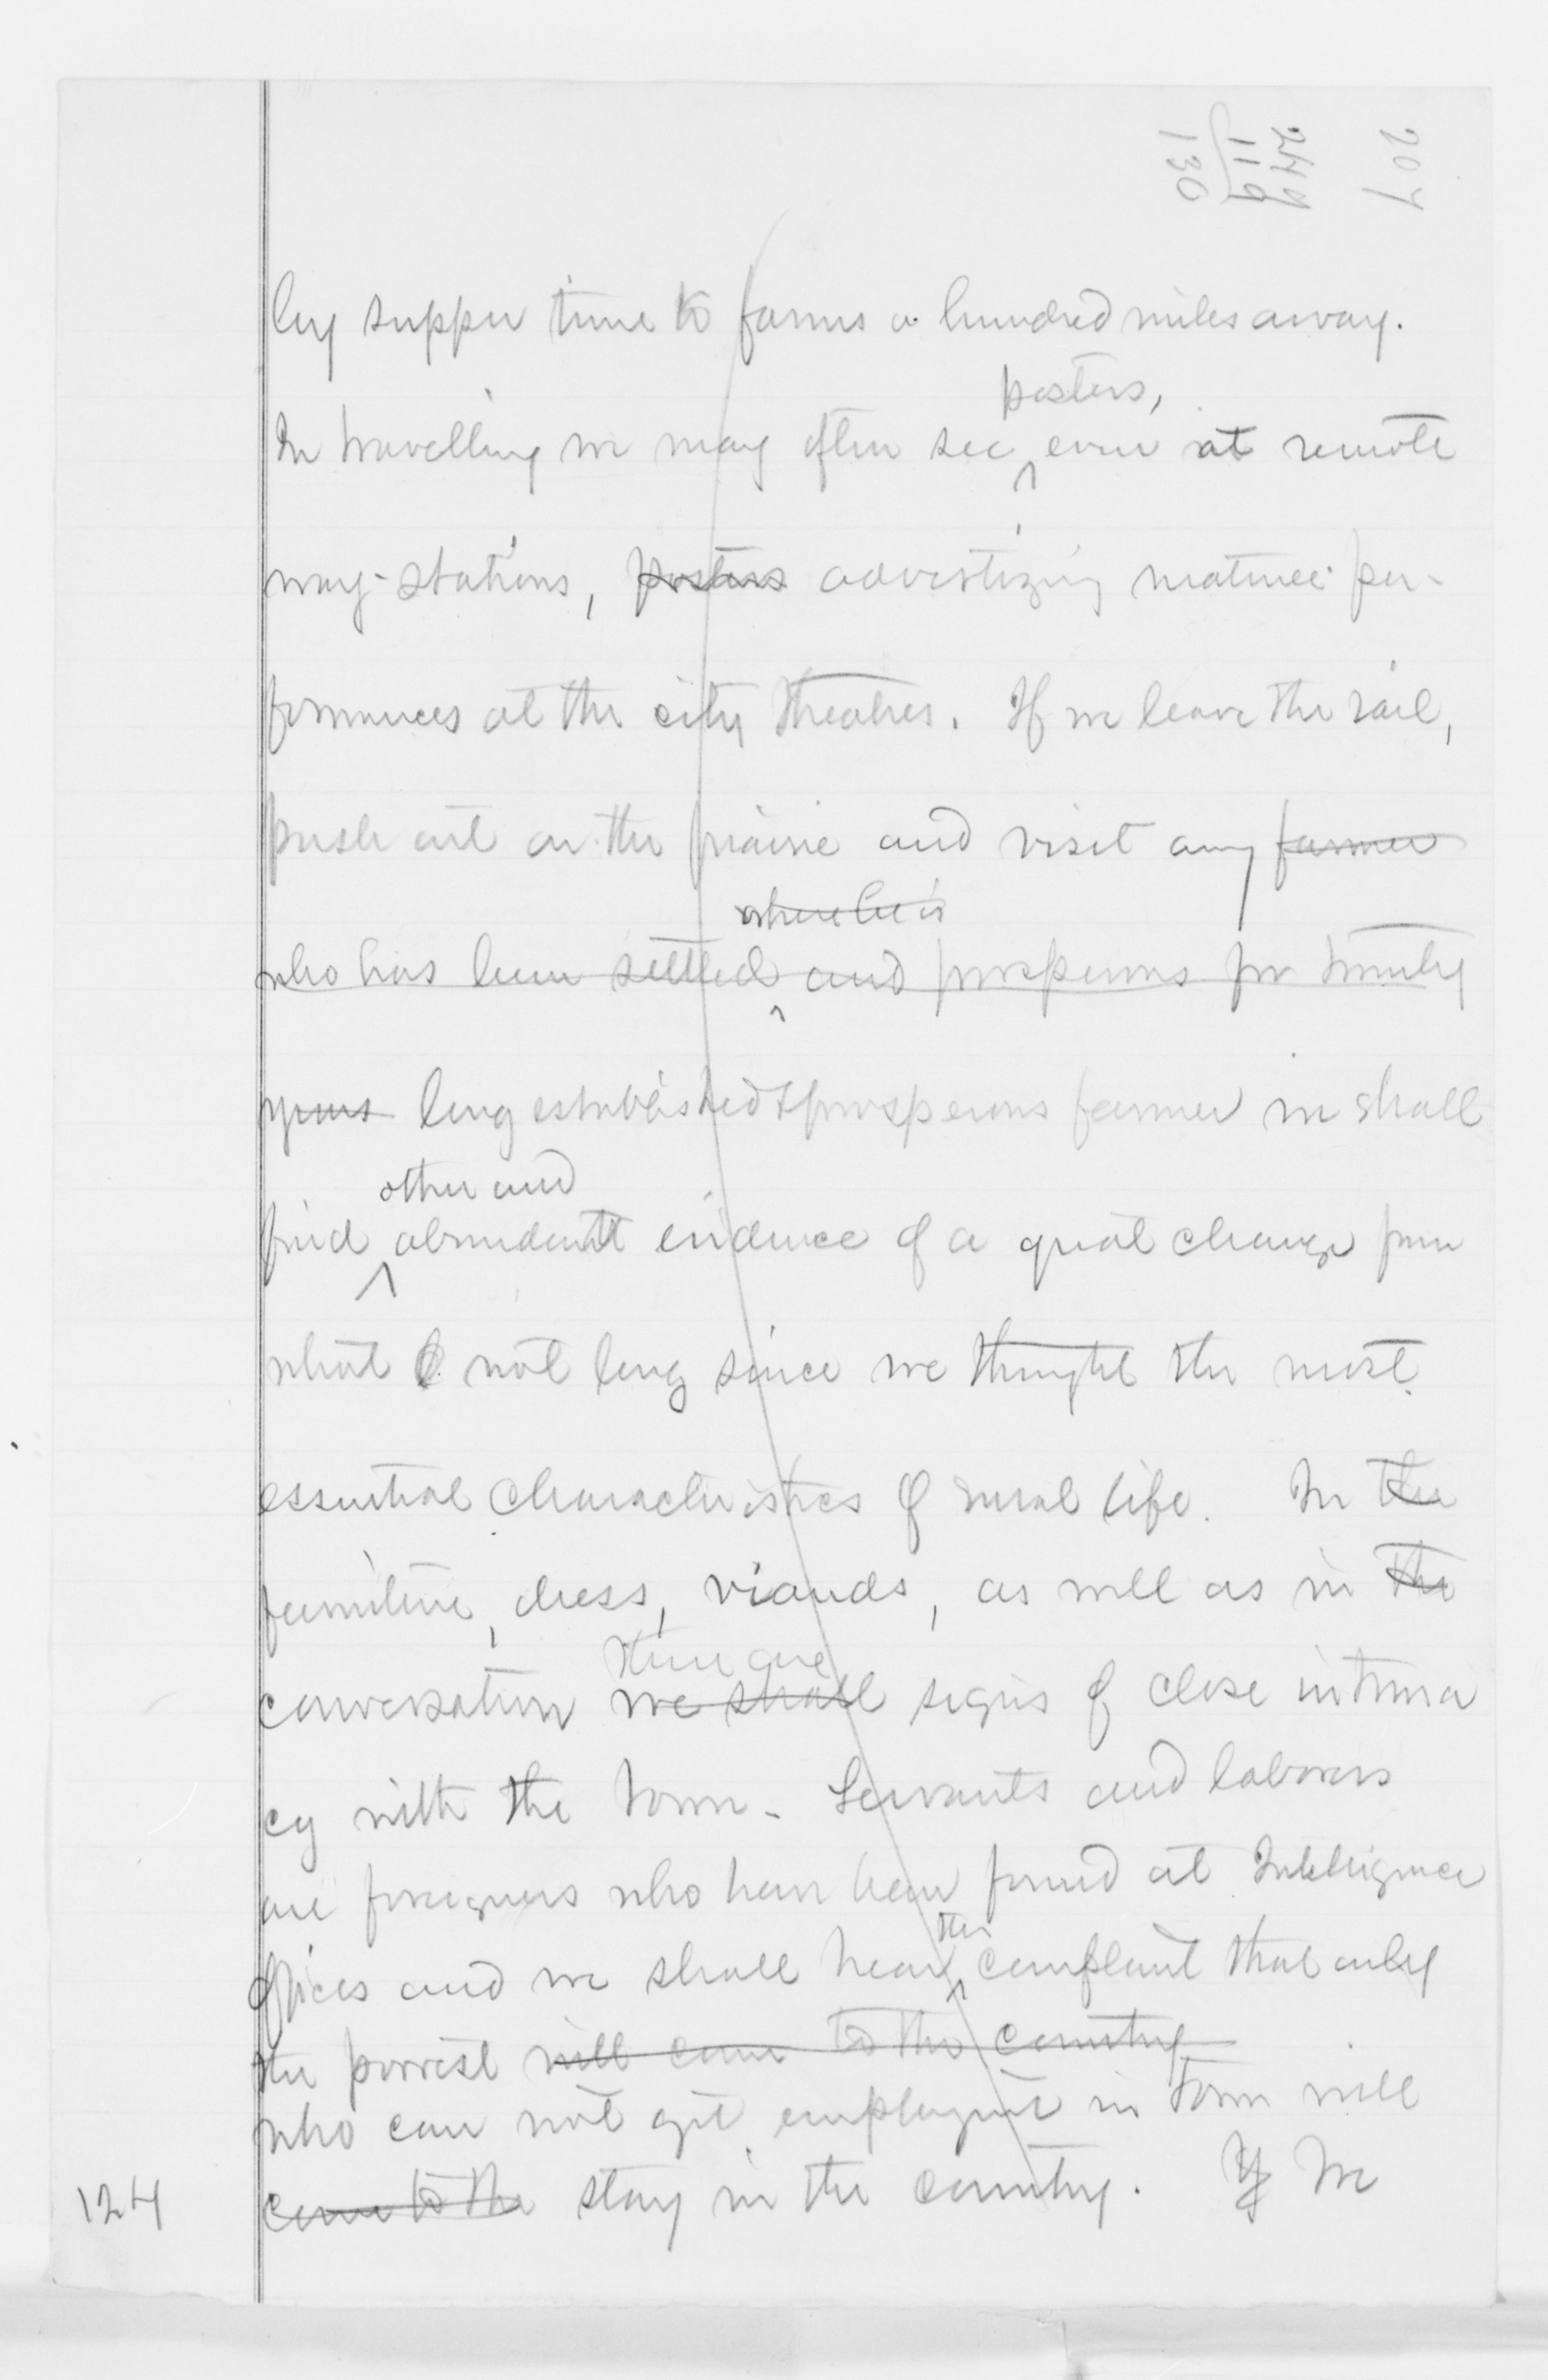 207
249
119
130
by supper time to farms a hundred miles away.
posters,
In travelling we may often see even at remote
way-stations, posters advertizing matinee per-
formances at the city theatres. If we leave the rail,
push out on the prairie and visit any farmer
where he is
who has been settled and prosperous for twenty
years long established & prosperous farmer we shall
other and
find abundant evidence of a great change from
what not long since we thought the most
essential characteristics of rural life. In the
furniture, dress, viands, as well as in the
there are
conversation we shall signs of close intima
cy with the town. Servants and laborers
are foreigners who have been found at Intelligence
the
offices and we shall hear complaint that only
the poorest will come to the country
who can not get employment in town will
come to the stay in the country. If We
124